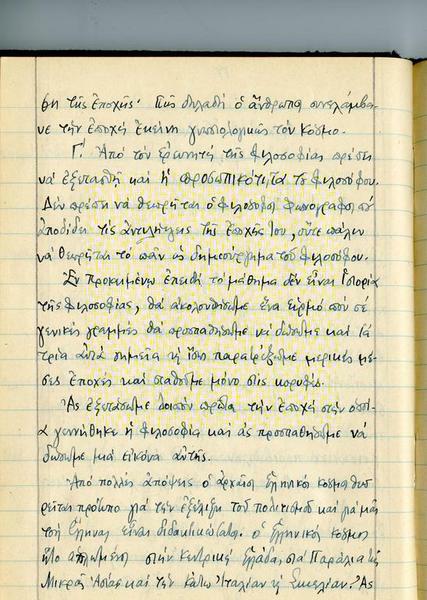 ση τῆς ἐποχῆς. Πῶς δηλαδὴ ὁ ἄνθρωπος συνελάμβα-
νε τὴν ἐποχὴ ἐκείνη γνωσιολογικῶς τὸν κόσμο.
Γ. Ἀπὸ τὸν ἐρευνητὴ τῆς φιλοσοφίας πρέπει
νὰ ἐξετασθῆ καὶ ἡ προσωπικότητα τοῦ φιλοσόφου.
Δὲν πρέπει νὰ θεωρῆται ὁ φιλόσοφος φωνογράφος ποὺ
ἀποδίδει τὶς ἀντιλήψεις τῆς ἐποχῆς του, οὔτε πάλιν
νὰ θεωρῆται τὸ πᾶν ὡς δημιούργημα τοῦ φιλοσόφου.
Ἐν προκειμένῳ ἐπειδὴ τὸ μάθημα δὲν εἶναι ἱστορία
τῆς φιλοσοφίας, θὰ ἀκολουθήσωμε ἕνα εἱρμὸ ποὺ σὲ
γενικὲς γραμμὲς θὰ προσπαθήσωμε νὰ δώσωμε καὶ τὰ
τρία αὐτὰ σημεῖα κι ἴσως παρατρέξωμε μερικὲς μέ-
σες ἐποχὲς καὶ σταθοῦμε μόνο στὶς κορυφές.
Ἂς ἐξετάσωμε λοιπὸν πρῶτα τὴν ἐποχὴ στὴν ὁποί-
α γεννήθηκε ἡ φιλοσοφία καὶ ἂς προσπαθήσωμε νὰ
δώσωμε μιὰ εἰκόνα αὐτῆς.
Ἀπὸ πολλὲς ἀπόψεις ὁ ἀρχαῖος ἑλληνικὸς κόσμος θεω
ρεῖται πρότυπο γιὰ τὴν ἐξέλιξη τοῦ πολιτισμοῦ καὶ γιὰ μᾶς
τοὺς Ἕλληνας εἶναι. ὁ ἑλληνικὸς κόσμος
ἦτο ἁπλωμένος στὴν Κεντρικὴ Ἑλλάδα, στὰ Παράλια τῆς
Μικρᾶς Ἀσίας καὶ τὴν κάτω Ἰταλίαν κι Σικελίαν. Ἂς